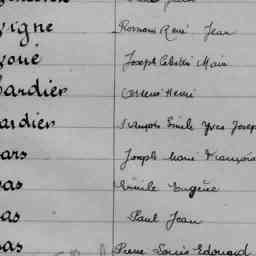 vigne Romans René Jean
voué Joseph Célestin Marie
Bardier Henri
ardier François Emile Yves Josep
ars Joseph Marie François
as Emile Eugène
as Paul Jean
as Pierre Louis Edouard